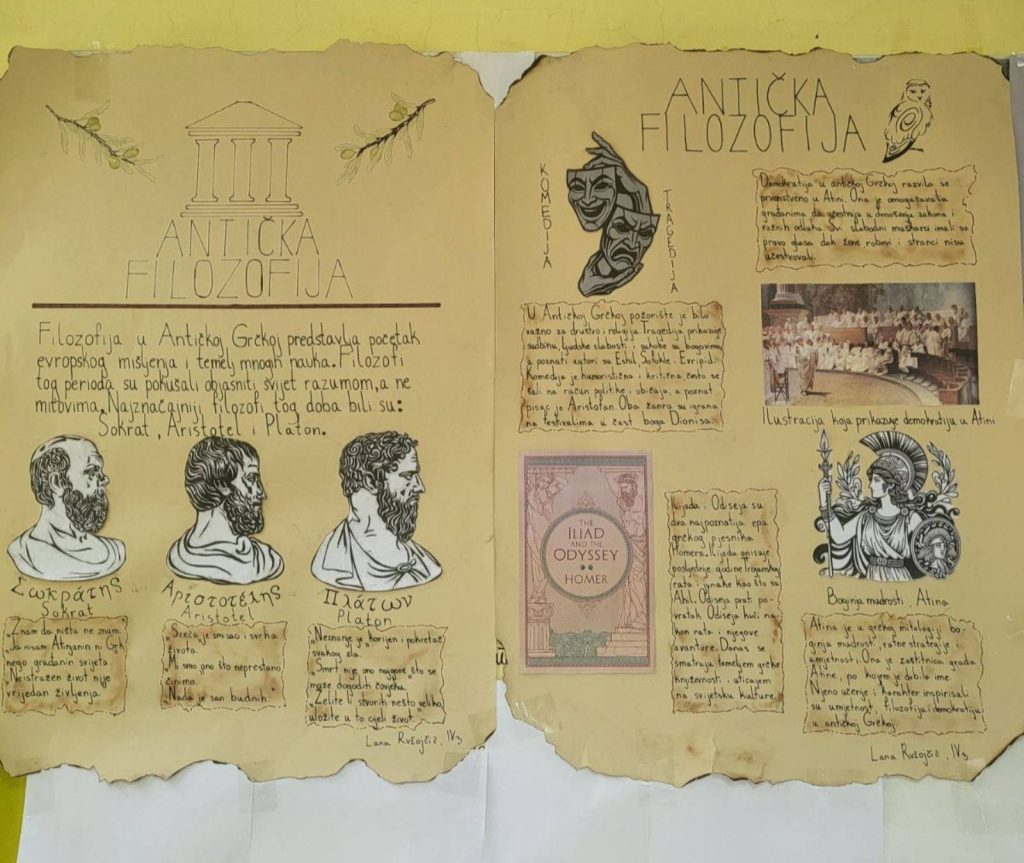 ANTIČKA
FILOZOFIJA
Filozofija u Antičkoj Grčkoj predstavlja početak
evropskog mišljenja i temelj mnogih nauka. Filozofi
tog perioda su pokušali objasniti svijet razumom, a ne
mitovima. Najznačajniji filozofi tog doba bili su:
Sokrat, Aristotel i Platon.
Σωκράτης
Sokrat
„Znam da ništa ne znam.
Ja nisam Atinjanin ni Grk
nego građanin svijeta.
Neistražen život nije
vrijedan življenja.
Αριστοτέλης
Aristotel
„Sreća je smisao i svrha
života.
„Mi smo ono što neprestano
činimo.
„Nada je san budnih."
Πλάτων
Platon
„Neznanje je korijen i pokretač
svakog zla.
„Smrt nije ono najgore što se
može dogoditi čovjeku.
„Želite li stvoriti nešto veliko,
uložite u to cijeli život.
Lana Ružojčić, IV3
ANTIČKA
FILOZOFIJA
KOMEDIJA
TRAGEDIJA
U Antičkoj Grčkoj pozorište je bilo
važno za društvo i religiju. Tragedija prikazuje
sudbinu, ljudske slabosti i sukobe sa bogovima,
a poznati autori su Eshil, Sofokle i Evripid.
Komedija je humoristična i kritična, često se
šali na račun politike i običaja, a poznat
pisac je Aristofan. Oba žanra su igrana
na festivalima u čast boga Dionisa.
Demokratija u antičkoj Grčkoj razvila se
prvenstveno u Atini. Ona je omogućavala
građanima da učestvuju u donošenju zakona i
važnih odluka. Svi slobodni muškarci imali su
pravo glasa dok žene robovi i stranci nisu
učestvovali.
Ilustracija koja prikazuje demokratiju u Atini
THE
ILIAD
AND THE
ODYSSEY
HOMER
Ilijada i Odiseja su
dva najpoznatija epa
grčkog pjesnika
Homera. Ilijada opisuje
posljednje godine Trojanskog
rata i junake kao što su
Ahil. Odiseja prati po-
vratak Odiseja kući na-
kon rata i njegove
avanture. Danas se
smatraju temeljem grčke
književnosti i uticajem
na svjetsku kulturu.
Boginja mudrosti, Atina
Atina je u grčkoj mitologiji bo-
ginja mudrosti, ratne strategije i
umjetnosti. Ona je zaštitnica grada
Atine, po kojem je dobila ime.
Njeno učenje i karakter inspirisali
su umjetnost, filozofiju i demokratiju
u antičkoj Grčkoj.
Lana Ružojčić, IV3